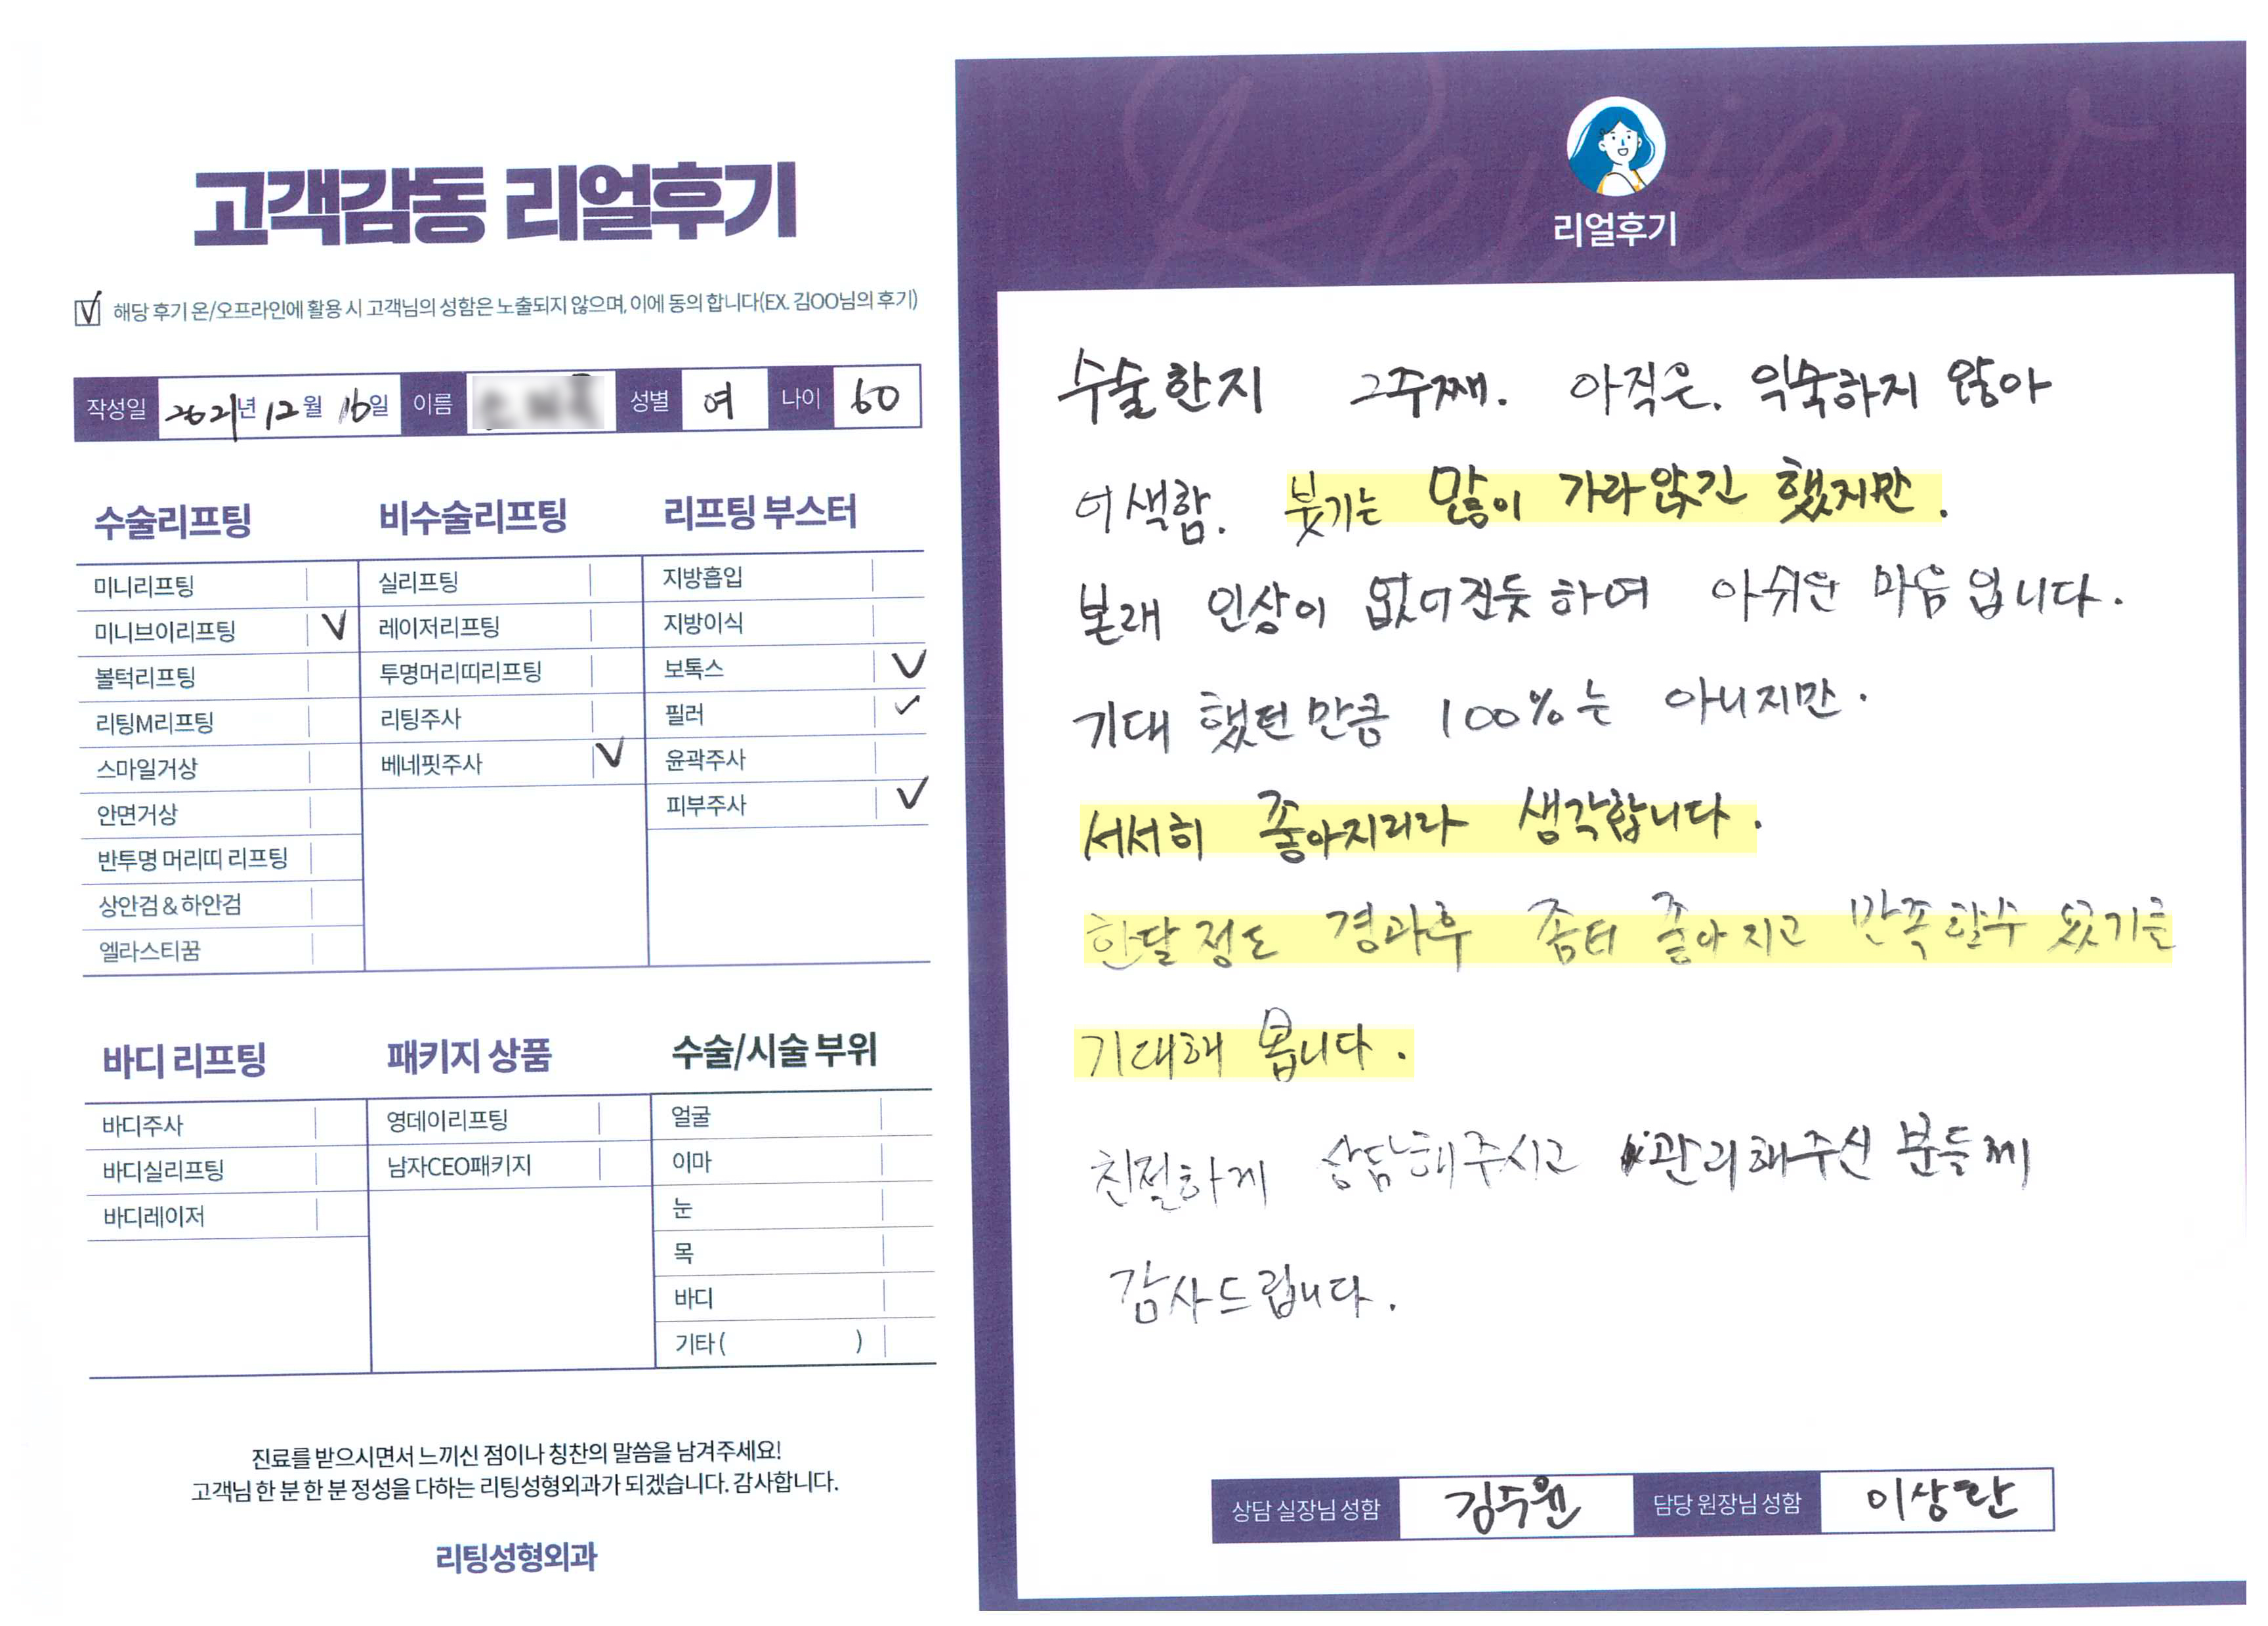 고객감동 리얼후기
V 해당 후기 온/오프라인에 활용 시 고객님의 성함은 노출되지 않으며, 이에 동의 합니다(EX. 김OO님의 후기)
작성일 2021년 12월 16일 이름 성별 여 나이 60
수술리프팅
미니리프팅
미니브이리프팅 V
볼턱리프팅
리팅M리프팅
스마일거상
안면거상
반투명 머리띠 리프팅
상안검 & 하안검
엘라스티꿈
비수술리프팅
실리프팅
레이저리프팅
투명머리띠리프팅
리팅주사
베네핏주사 V
리프팅 부스터
지방흡입
지방이식
보톡스 V
필러 ✓
윤곽주사
피부주사 V
바디 리프팅
바디주사
바디실리프팅
바디레이저
패키지 상품
영데이리프팅
남자CEO패키지
수술/시술 부위
얼굴
이마
눈
목
바디
기타 ( )
진료를 받으시면서 느끼신 점이나 칭찬의 말씀을 남겨주세요!
고객님 한 분 한 분 정성을 다하는 리팅성형외과가 되겠습니다. 감사합니다.
리팅성형외과
Review
리얼후기
수술한지 2주째. 아직은. 익숙하지 않아
어색함. 붓기는 많이 가라앉긴 했지만.
본래 인상이 없어진듯 하여 아쉬운 마음입니다.
기대 했던만큼 100%는 아니지만.
서서히 좋아지리라 생각합니다.
한달정도 경과후 좀더 좋아지고 만족할수 있기를
기대해 봅니다.
친절하게 상담해주시고 관리해주신 분들께
감사드립니다.
상담 실장님 성함 김수원 담당 원장님 성함 이상란